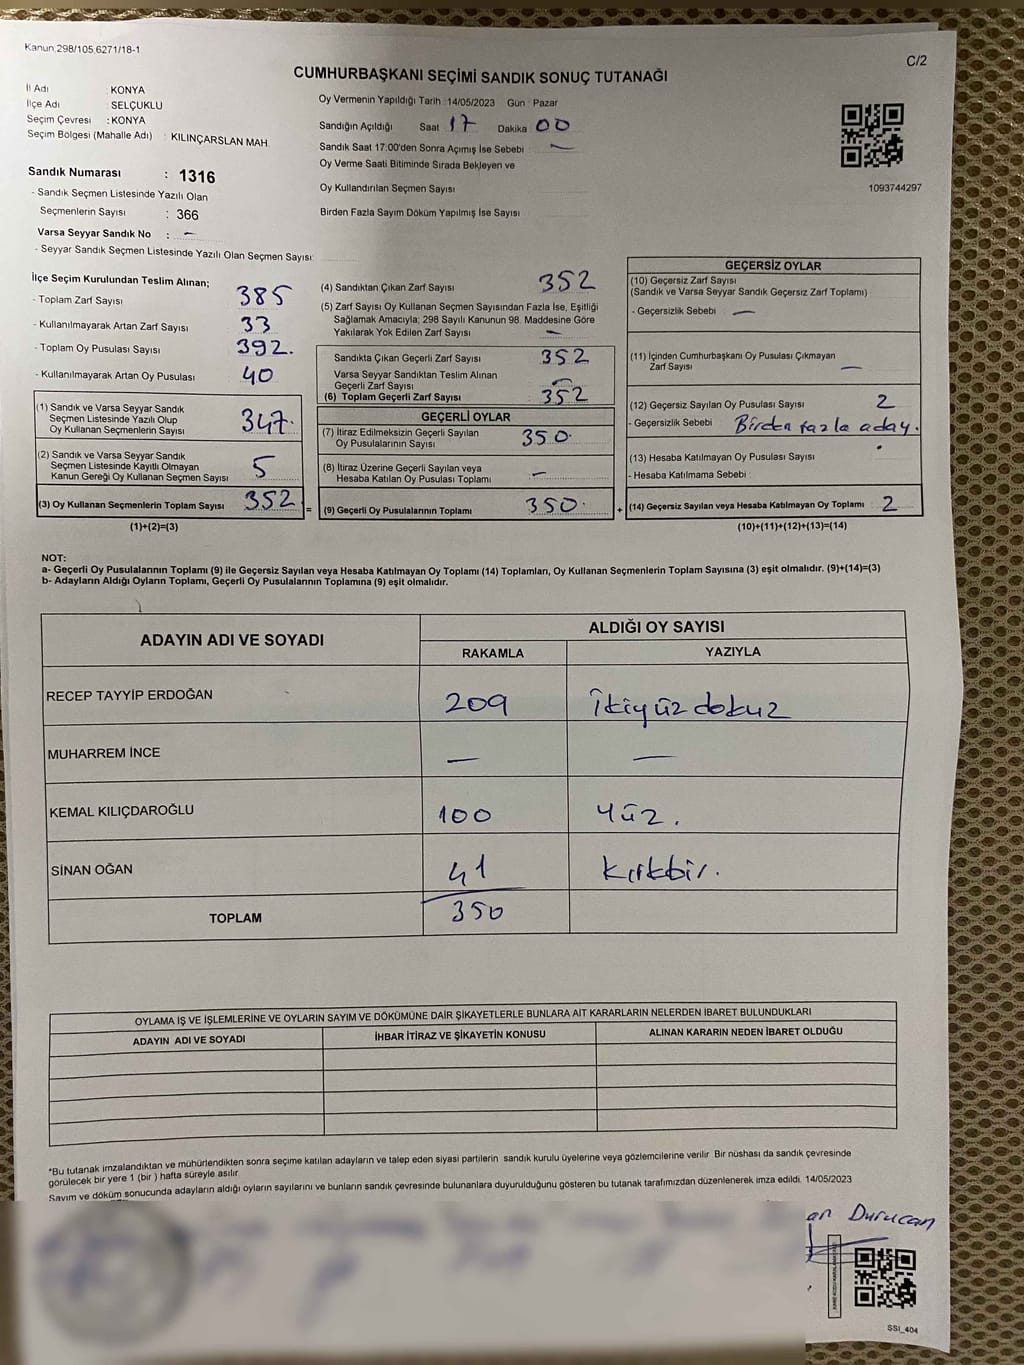 Kanun 298/105,6271/18-1
C/2
CUMHURBAŞKANI SEÇİMİ SANDIK SONUÇ TUTANAĞI
İl Adı : KONYA
İlçe Adı : SELÇUKLU
Seçim Çevresi : KONYA
Seçim Bölgesi (Mahalle Adı) : KILINÇARSLAN MAH.
Oy Vermenin Yapıldığı Tarih : 14/05/2023 Gün : Pazar
Sandığın Açıldığı Saat 17 Dakika 00
Sandık Saat 17:00'den Sonra Açımış İse Sebebi : —
Oy Verme Saati Bitiminde Sırada Bekleyen ve
Oy Kullandırılan Seçmen Sayısı
Birden Fazla Sayım Döküm Yapılmış İse Sayısı
1093744297
Sandık Numarası : 1316
- Sandık Seçmen Listesinde Yazılı Olan
Seçmenlerin Sayısı : 366
Varsa Seyyar Sandık No : —
- Seyyar Sandık Seçmen Listesinde Yazılı Olan Seçmen Sayısı:
İlçe Seçim Kurulundan Teslim Alınan;
- Toplam Zarf Sayısı 385
- Kullanılmayarak Artan Zarf Sayısı 33
- Toplam Oy Pusulası Sayısı 392.
- Kullanılmayarak Artan Oy Pusulası 40
(1) Sandık ve Varsa Seyyar Sandık
Seçmen Listesinde Yazılı Olup
Oy Kullanan Seçmenlerin Sayısı 347.
(2) Sandık ve Varsa Seyyar Sandık
Seçmen Listesinde Kayıtlı Olmayan
Kanun Gereği Oy Kullanan Seçmen Sayısı 5
(3) Oy Kullanan Seçmenlerin Toplam Sayısı 352
(1)+(2)=(3)
=
(4) Sandıktan Çıkan Zarf Sayısı 352
(5) Zarf Sayısı Oy Kullanan Seçmen Sayısından Fazla İse, Eşitliği
Sağlamak Amacıyla; 298 Sayılı Kanunun 98. Maddesine Göre
Yakılarak Yok Edilen Zarf Sayısı —
Sandıkta Çıkan Geçerli Zarf Sayısı 352
Varsa Seyyar Sandıktan Teslim Alınan
Geçerli Zarf Sayısı —
(6) Toplam Geçerli Zarf Sayısı 352
GEÇERLİ OYLAR
(7) İtiraz Edilmeksizin Geçerli Sayılan
Oy Pusulalarının Sayısı 350.
(8) İtiraz Üzerine Geçerli Sayılan veya
Hesaba Katılan Oy Pusulası Toplamı —
(9) Geçerli Oy Pusulalarının Toplamı 350.
+
GEÇERSİZ OYLAR
(10) Geçersiz Zarf Sayısı
(Sandık ve Varsa Seyyar Sandık Geçersiz Zarf Toplamı)
- Geçersizlik Sebebi : —
(11) İçinden Cumhurbaşkanı Oy Pusulası Çıkmayan
Zarf Sayısı —
(12) Geçersiz Sayılan Oy Pusulası Sayısı 2
- Geçersizlik Sebebi : Birden fazla aday.
(13) Hesaba Katılmayan Oy Pusulası Sayısı
- Hesaba Katılmama Sebebi :
(14) Geçersiz Sayılan veya Hesaba Katılmayan Oy Toplamı 2
(10)+(11)+(12)+(13)=(14)
NOT:
a- Geçerli Oy Pusulalarının Toplamı (9) ile Geçersiz Sayılan veya Hesaba Katılmayan Oy Toplamı (14) Toplamları, Oy Kullanan Seçmenlerin Toplam Sayısına (3) eşit olmalıdır. (9)+(14)=(3)
b- Adayların Aldığı Oyların Toplamı, Geçerli Oy Pusulalarının Toplamına (9) eşit olmalıdır.
ADAYIN ADI VE SOYADI ALDIĞI OY SAYISI
RAKAMLA YAZIYLA
RECEP TAYYİP ERDOĞAN 209 İkiyüz dokuz
MUHARREM İNCE — —
KEMAL KILIÇDAROĞLU 100 Yüz.
SİNAN OĞAN 41 Kırkbir.
TOPLAM 350
OYLAMA İŞ VE İŞLEMLERİNE VE OYLARIN SAYIM VE DÖKÜMÜNE DAİR ŞİKAYETLERLE BUNLARA AİT KARARLARIN NELERDEN İBARET BULUNDUKLARI
ADAYIN ADI VE SOYADI İHBAR İTİRAZ VE ŞİKAYETİN KONUSU ALINAN KARARIN NEDEN İBARET OLDUĞU
*Bu tutanak imzalandıktan ve mühürlendikten sonra seçime katılan adayların ve talep eden siyasi partilerin sandık kurulu üyelerine veya gözlemcilerine verilir Bir nüshası da sandık çevresinde
görülecek bir yere 1 (bir ) hafta süreyle asılır.
Sayım ve döküm sonucunda adayların aldığı oyların sayılarını ve bunların sandık çevresinde bulunanlara duyurulduğunu gösteren bu tutanak tarafımızdan düzenlenerek imza edildi. 14/05/2023
an Durucan
SSI_404